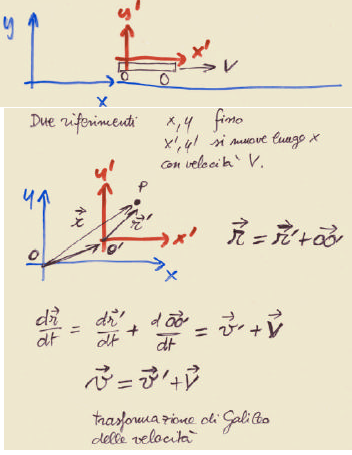 y
y'
x'
V
x
Due riferimenti x, y fisso
x', y' si muove lungo x
con velocità V.
y
y'
P
r⃗
r⃗'
O
O'
x'
x
r⃗ = r⃗' + OO⃗'
dr⃗/dt = dr⃗'/dt + dOO⃗'/dt = v⃗' + V⃗
v⃗ = v⃗' + V⃗
trasformazione di Galileo
delle velocità